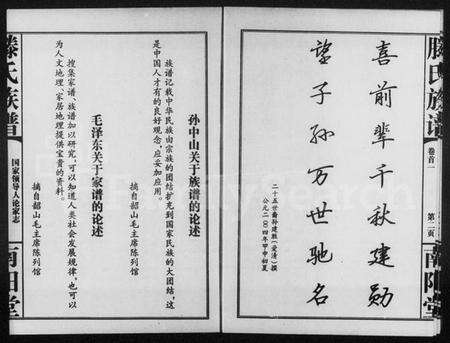 滕氏族谱
卷首一
第二页
南阳堂
喜前辈千秋建勋
望子孙万世驰名
二十五世裔孙建胜（爱清）撰
公元二〇〇四年甲申初夏
孙中山关于族谱的论述
族谱记载中华民族由宗族的团结扩充到国家民族的大团结，这
是中国人才有的良好观念，应妥加应用。
摘自韶山毛主席陈列馆
毛泽东关于家谱的论述
搜集家谱、族谱加以研究，可以知道人类社会发展规律，也可以
为人文地理、家居地理提供宝贵的资料。
摘自韶山毛主席陈列馆
滕氏族谱
国家领导人论家志
南阳堂